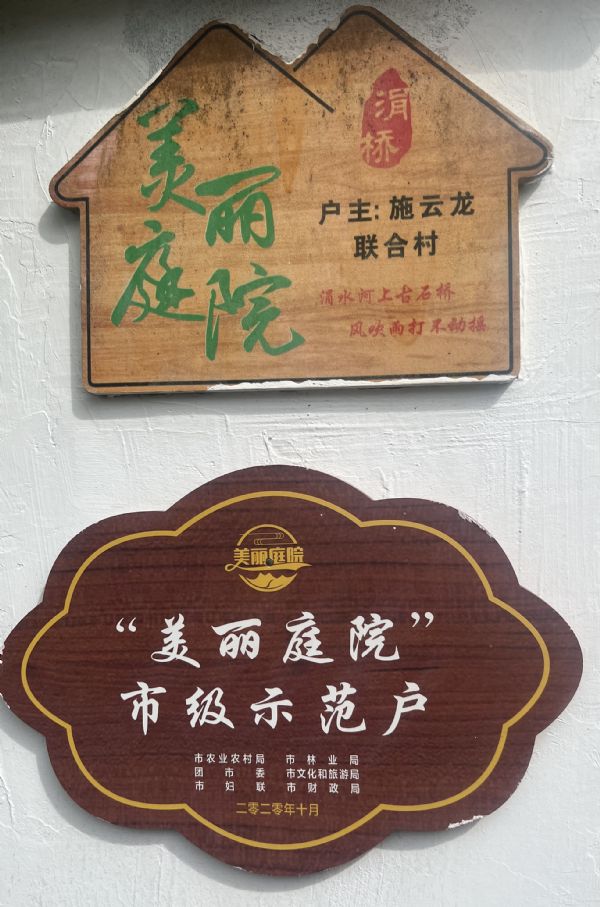 美丽
庭院
涓桥
户主:施云龙
联合村
涓水河上古石桥
风吹雨打不动摇
美丽庭院
“美丽庭院”
市级示范户
市农业农村局 市林业局
团市委 市文化和旅游局
市妇联 市财政局
二零二零年十月